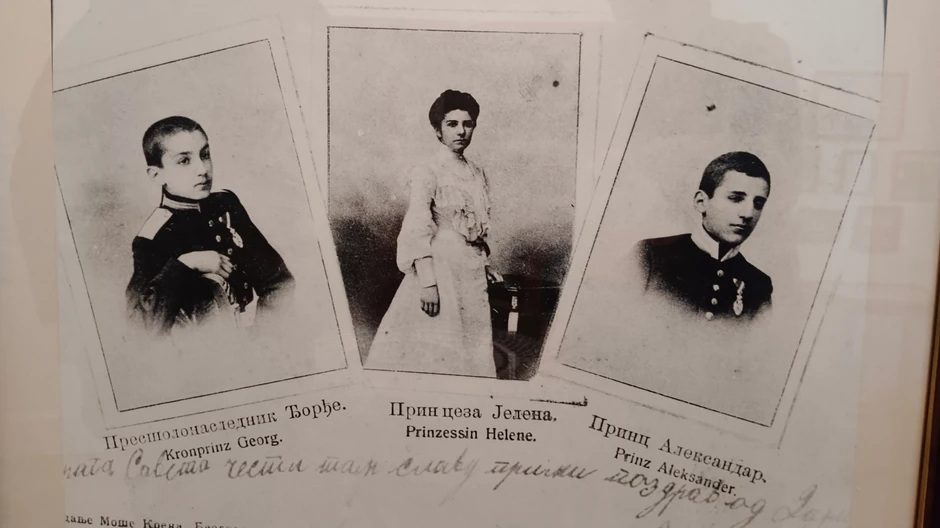 Престолонаследник Ђорђе.
Kronprinz Georg.
Принцеза Јелена.
Prinzessin Helene.
Принц Александар.
Prinz Aleksander.
Савета чести там славу прими поздрав од
дање Моше Коена,